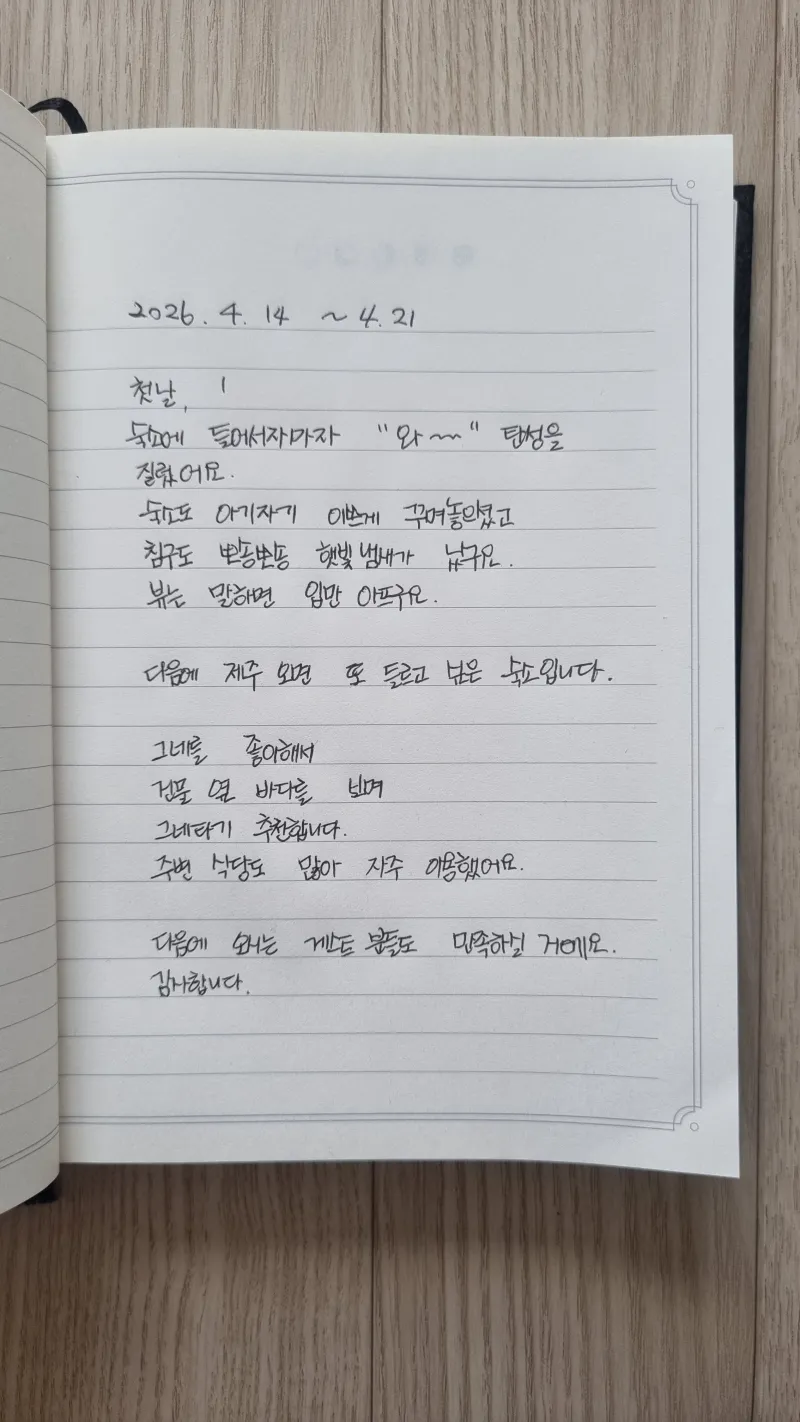 2026. 4. 14 ~ 4. 21
첫날,
숙소에 들어서자마자 "와~~" 탄성을
질렀어요.
숙소도 아기자기 이쁘게 꾸며놓으셨고
침구도 뽀송뽀송 햇빛 냄새가 났구요.
뷰는 말하면 입만 아프구요.
다음에 제주 오면 또 들르고 남은 숙소입니다.
그네를 좋아해서
건물 옆 바다를 보며
그네타기 추천합니다.
주변 식당도 많아 자주 이용했어요.
다음에 오시는 게스트 분들도 만족하실 거에요.
감사합니다.